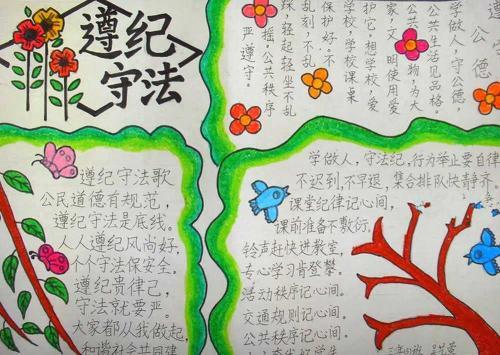 遵纪
守法
遵
公德
学做人,守公德,
公共生活见品格。
公共 物,为大
家,文明使用爱
护它。想学校,爱
学校,学校课桌
保护好。不
乱刻,不乱
踩,轻起轻坐不乱
摇。公共秩序
严遵守。
遵纪守法歌
公民道德有规范,
遵纪守法是底线。
人人遵纪风尚好,
个个守法保安全。
遵纪贵律己,
守法就要严。
大家都从我做起,
和谐社会共同建
学做人,守法纪,行为举止要自律
不迟到,不早退,集合排队快静齐
课堂纪律记心间,
课前准备不敷衍。
铃声赶快进教室,
专心学习肯登攀。
活动秩序记心间。
交通规则记心间。
公共秩序记心间。